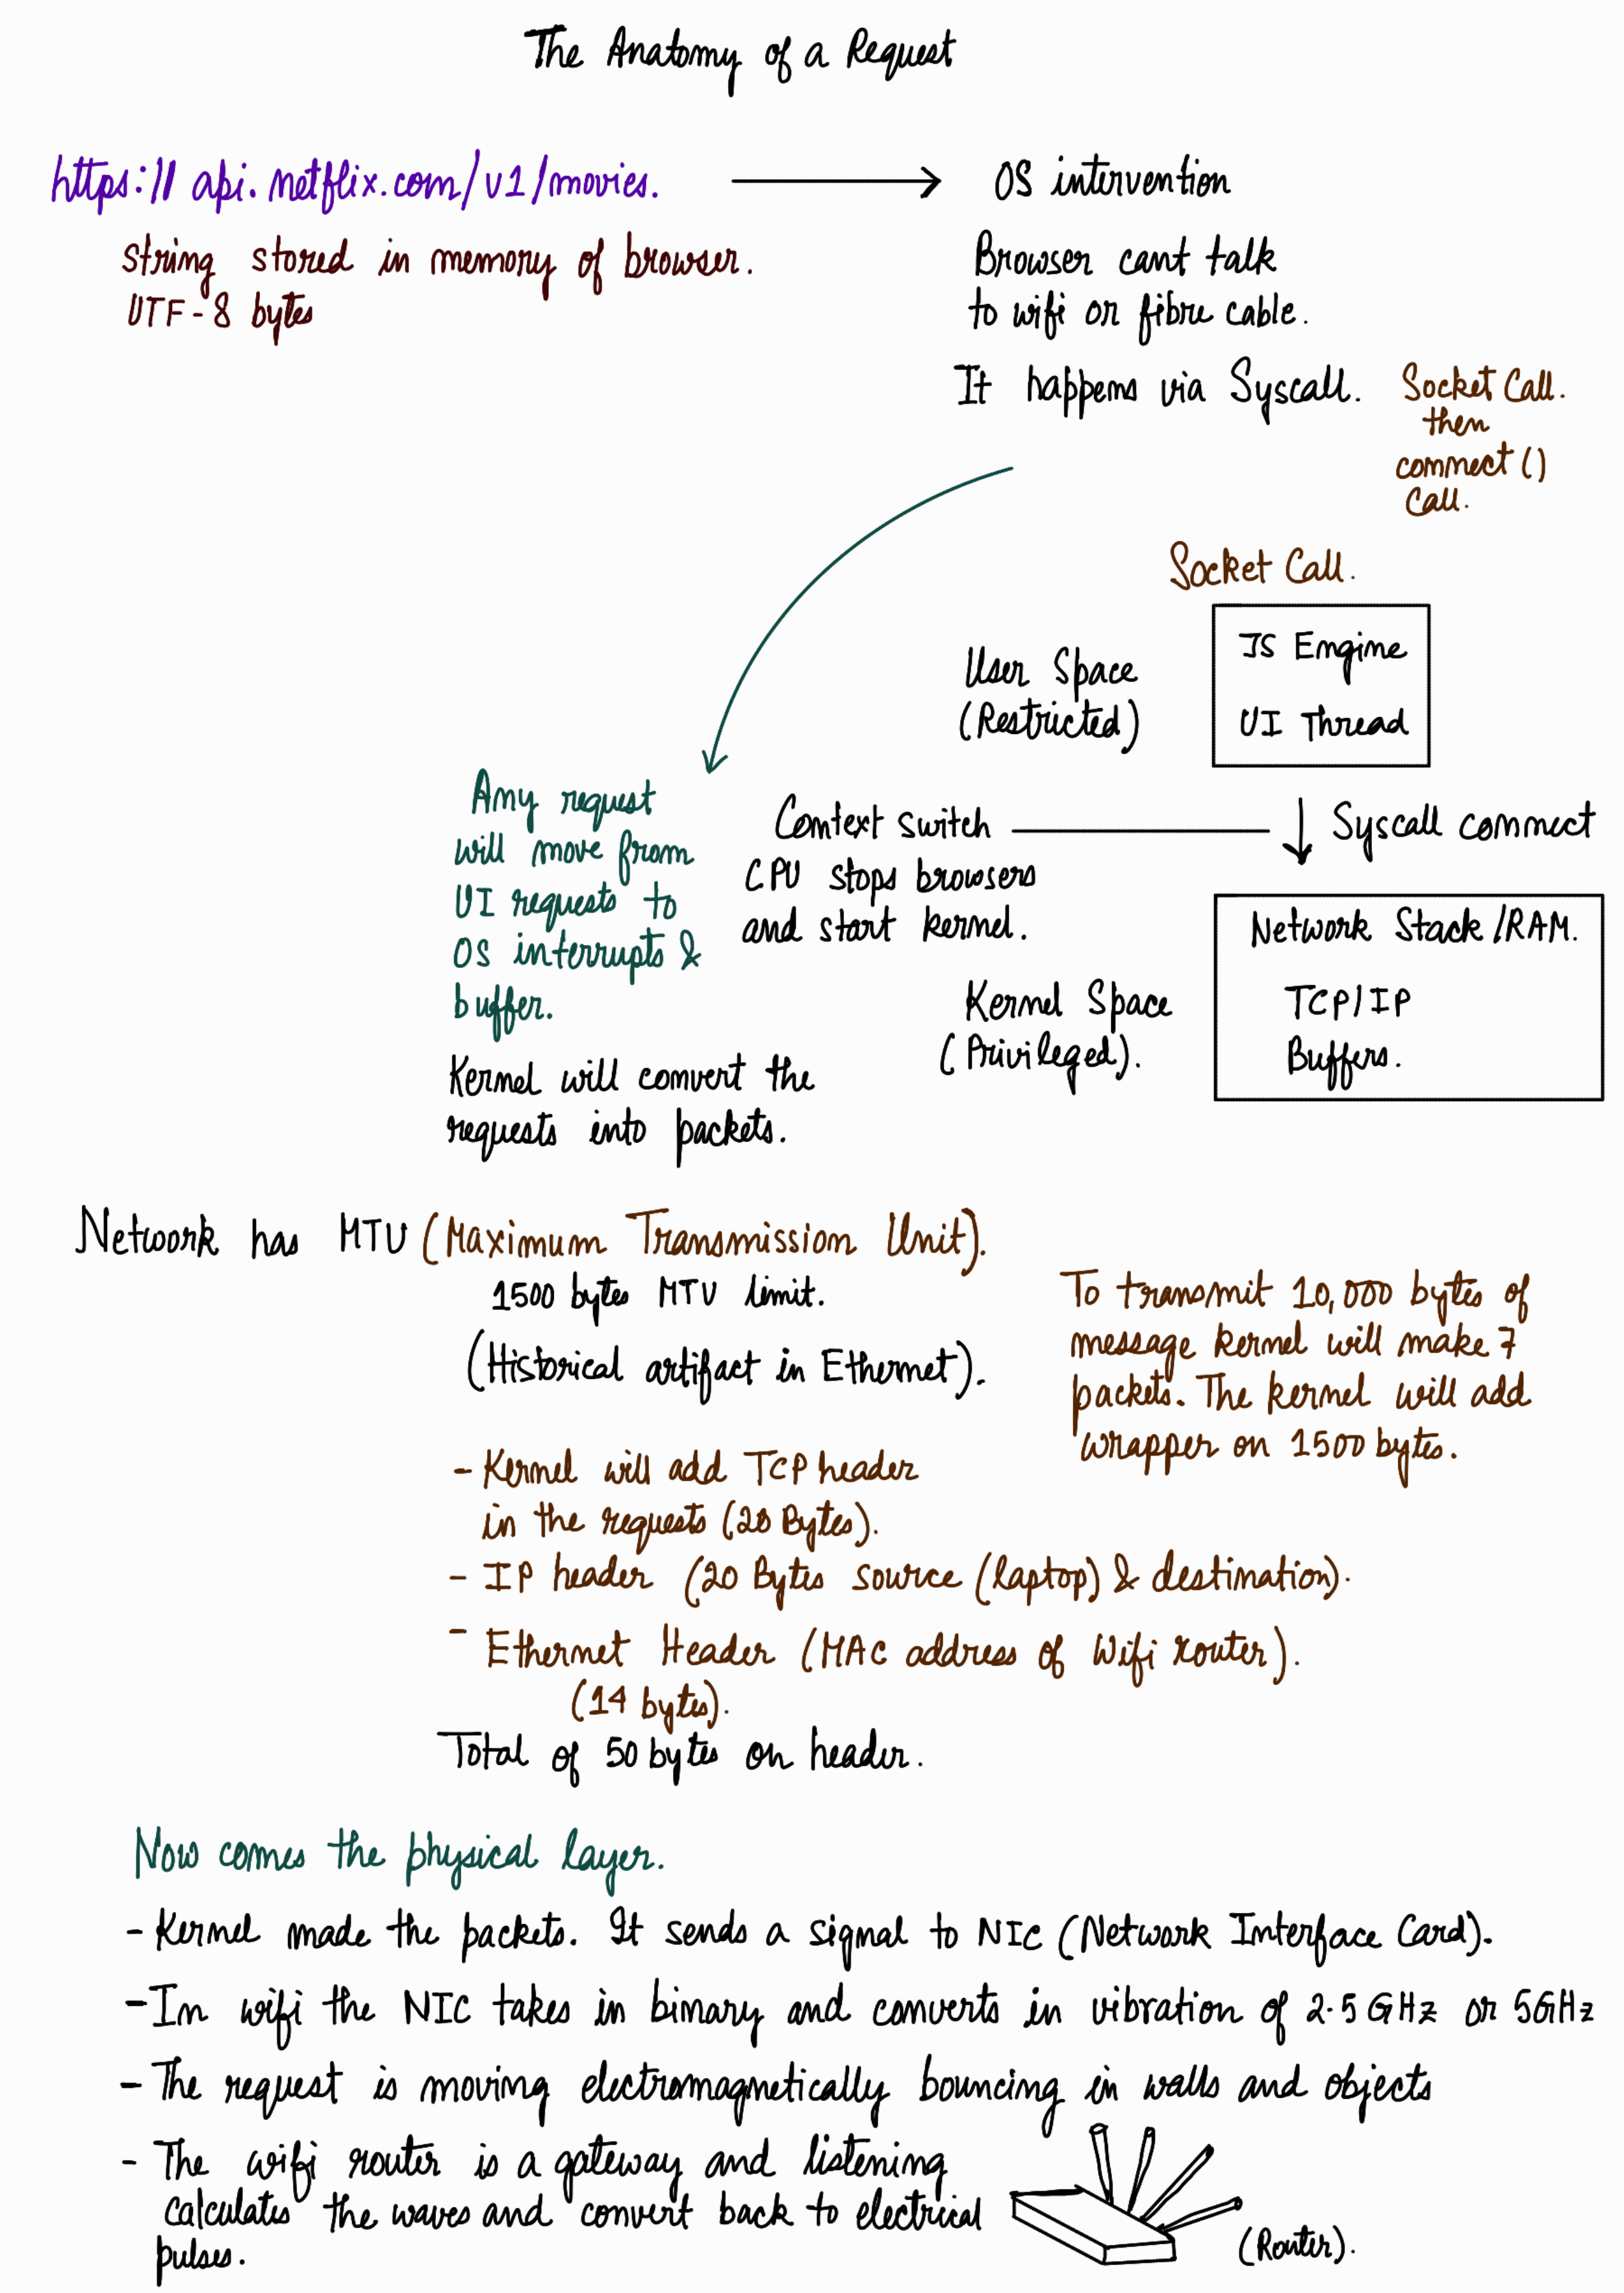 The Anatomy of a Request
https:// api.netflix.com/v1/movies.
String stored in memory of browser.
UTF-8 bytes
OS intervention
Browser cant talk
to wifi or fibre cable.
It happens via Syscall.
Socket Call.
then
connect ()
Call.
Socket Call.
User Space
(Restricted)
JS Engine
UI Thread
Any request
will move from
UI requests to
OS interrupts &
buffer.
Kernel will convert the
requests into packets.
Context switch
CPU stops browsers
and start kernel.
Syscall connect
Kernel Space
(Privileged).
Network Stack /RAM.
TCP/IP
Buffers.
Network has MTU (Maximum Transmission Unit).
1500 bytes MTU limit.
(Historical artifact in Ethernet).
To transmit 10,000 bytes of
message kernel will make 7
packets. The kernel will add
wrapper on 1500 bytes.
- Kernel will add TCP header
in the requests (20 Bytes).
- IP header (20 Bytes source (laptop) & destination).
- Ethernet Header (MAC address of Wifi router).
(14 bytes).
Total of 50 bytes on header.
Now comes the physical layer.
- Kernel made the packets. It sends a signal to NIC (Network Interface Card).
- In wifi the NIC takes in binary and converts in vibration of 2.5 GHz or 5GHz
- The request is moving electromagnetically bouncing in walls and objects
- The wifi router is a gateway and listening
calculates the waves and convert back to electrical
pulses.
(Router).